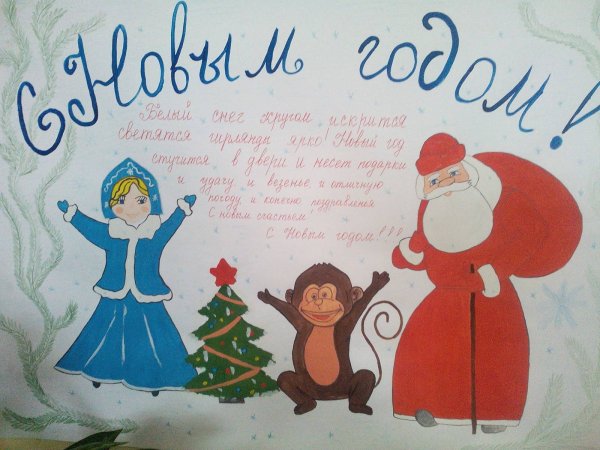 С Новым годом!
Белый снег кругом искрится
светятся гирлянды ярко! Новый год
стучится в двери и несет подарки
и удачу и везенье, и отличную
погоду и конечно поздравленья
С новым счастьем!
С Новым годом!!!